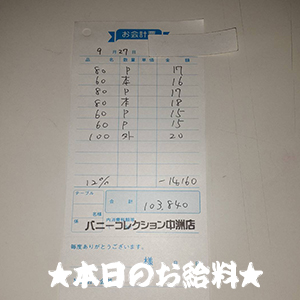 お会計
9月27日
品名 数量 単価 金額
80 P 17
60 本 16
80 P 17
80 本 18
60 P 15
60 P 15
100 外 20
12% -14160
テーブル
名様
合計 103,840
内消費税額等
バニーコレクション中洲店
毎度ありがとうございます。
様
★本日のお給料★